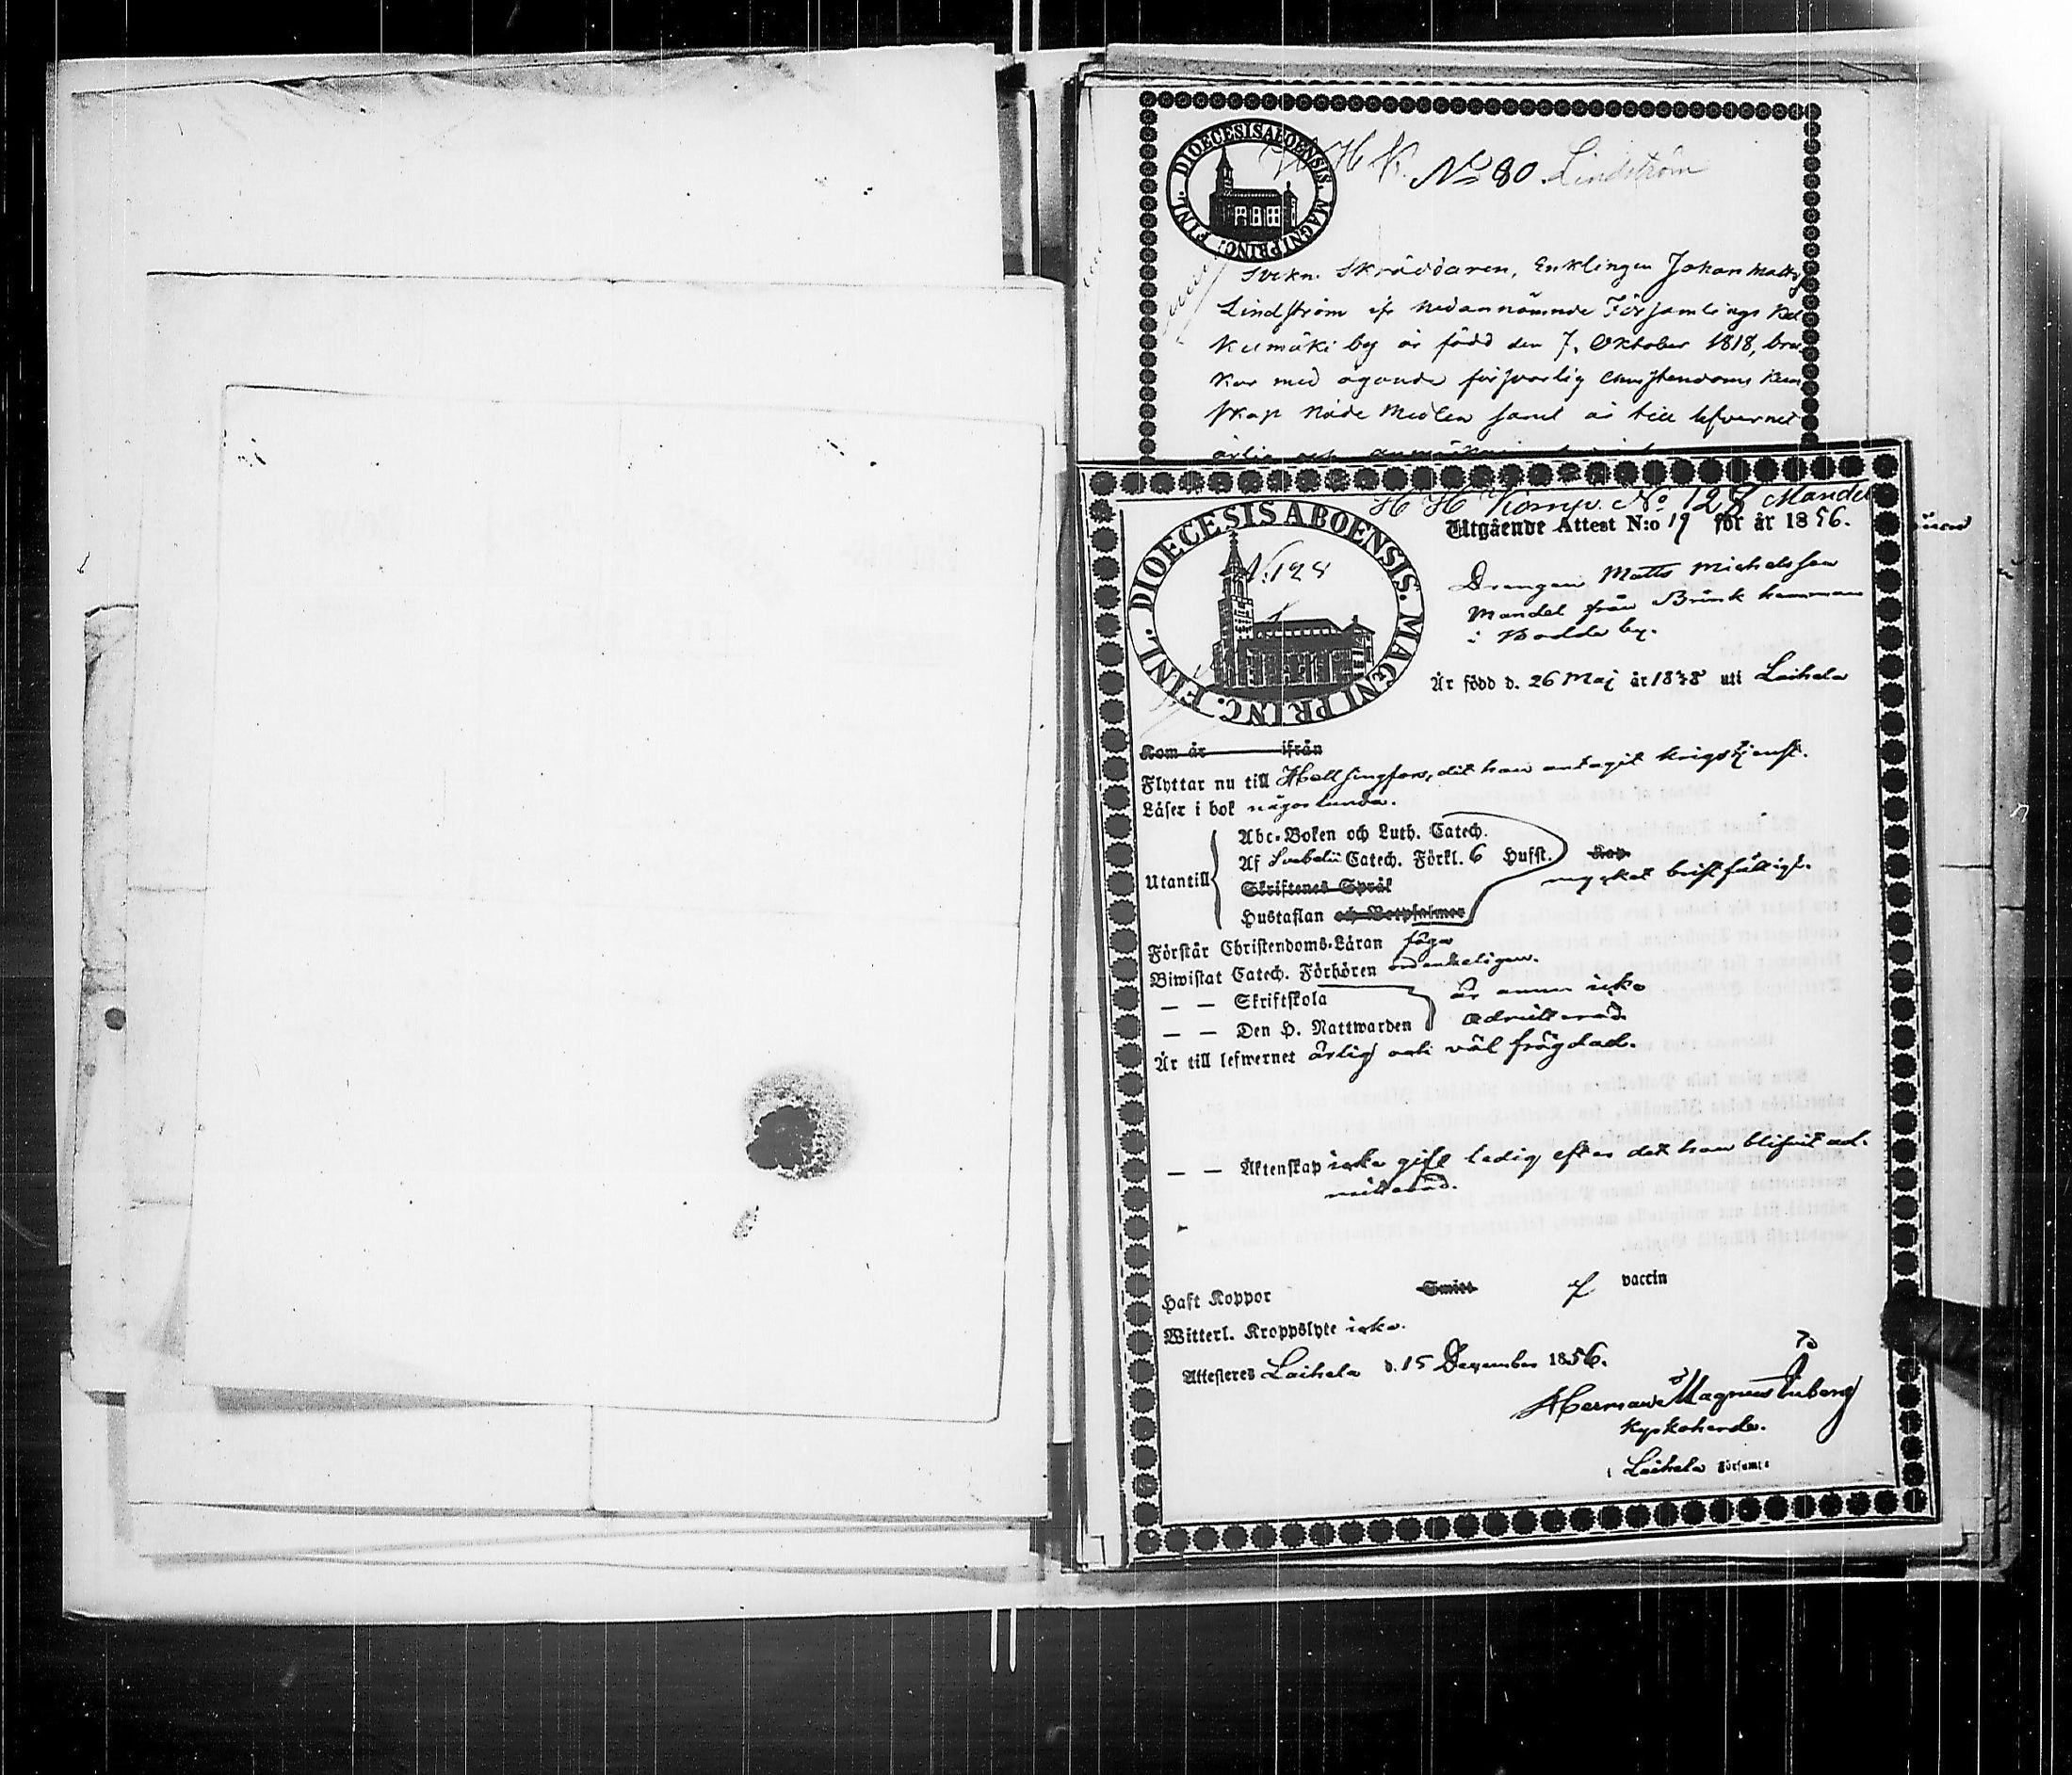 DIOECESIS ABOENSIS. MAGNI PRINC. FINL.
H K. No 80 Lindström
Sockn. Skräddaren, Enklingen Johan Matts
Lindström ifr nedannämnde Församlings
by är född den 7. Oktober 1818,
kar med ägande försvarlig Christendoms
skap Nåde Medlen samt är till lefvernet
ärlig och
H H Komp. No 128 Mandel
DIOECESIS ABOENSIS. MAGNI PRINC. FINL.
N. 128
Utgående Attest N:o 19 för år 1856.
Drengen Matts Michelsson
Mandel från Brink hemman
i by.
Är född d. 26 Maj år 1838 uti Laihela
Kom år ifrån
Flyttar nu till Hellsingfors, dit han antagit krigstjenst.
Läser i bok någorlunda.
Utantill
Abc-Boken och Luth. Catech.
Af Svebelii Catech. Förkl. 6 Hufst.
mycket bristfälligt.
Skriftenes Språk
Hustaflan och Botpsalmer
Förstår Christendoms-Läran föga
Biwistat Catech. Förhören ordenteligen.
— — Skriftskola
är ännu icke
— — Den H. Nattwarden
admitterad.
Är till lefwernet ärlig och väl frägdad.
— — Äktenskap icke gift ledig efter det han blifvit ad-
mitterad.
Haft Koppor Smitt / vaccin
Witterl. Kroppslyte icke.
Attesteras Laihela d. 15 December 1856.
Herman Magnus
Kyrkoherde.
i Laihela Församl: